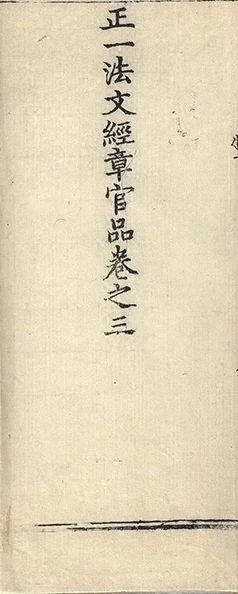 正一法文經章官品卷之三